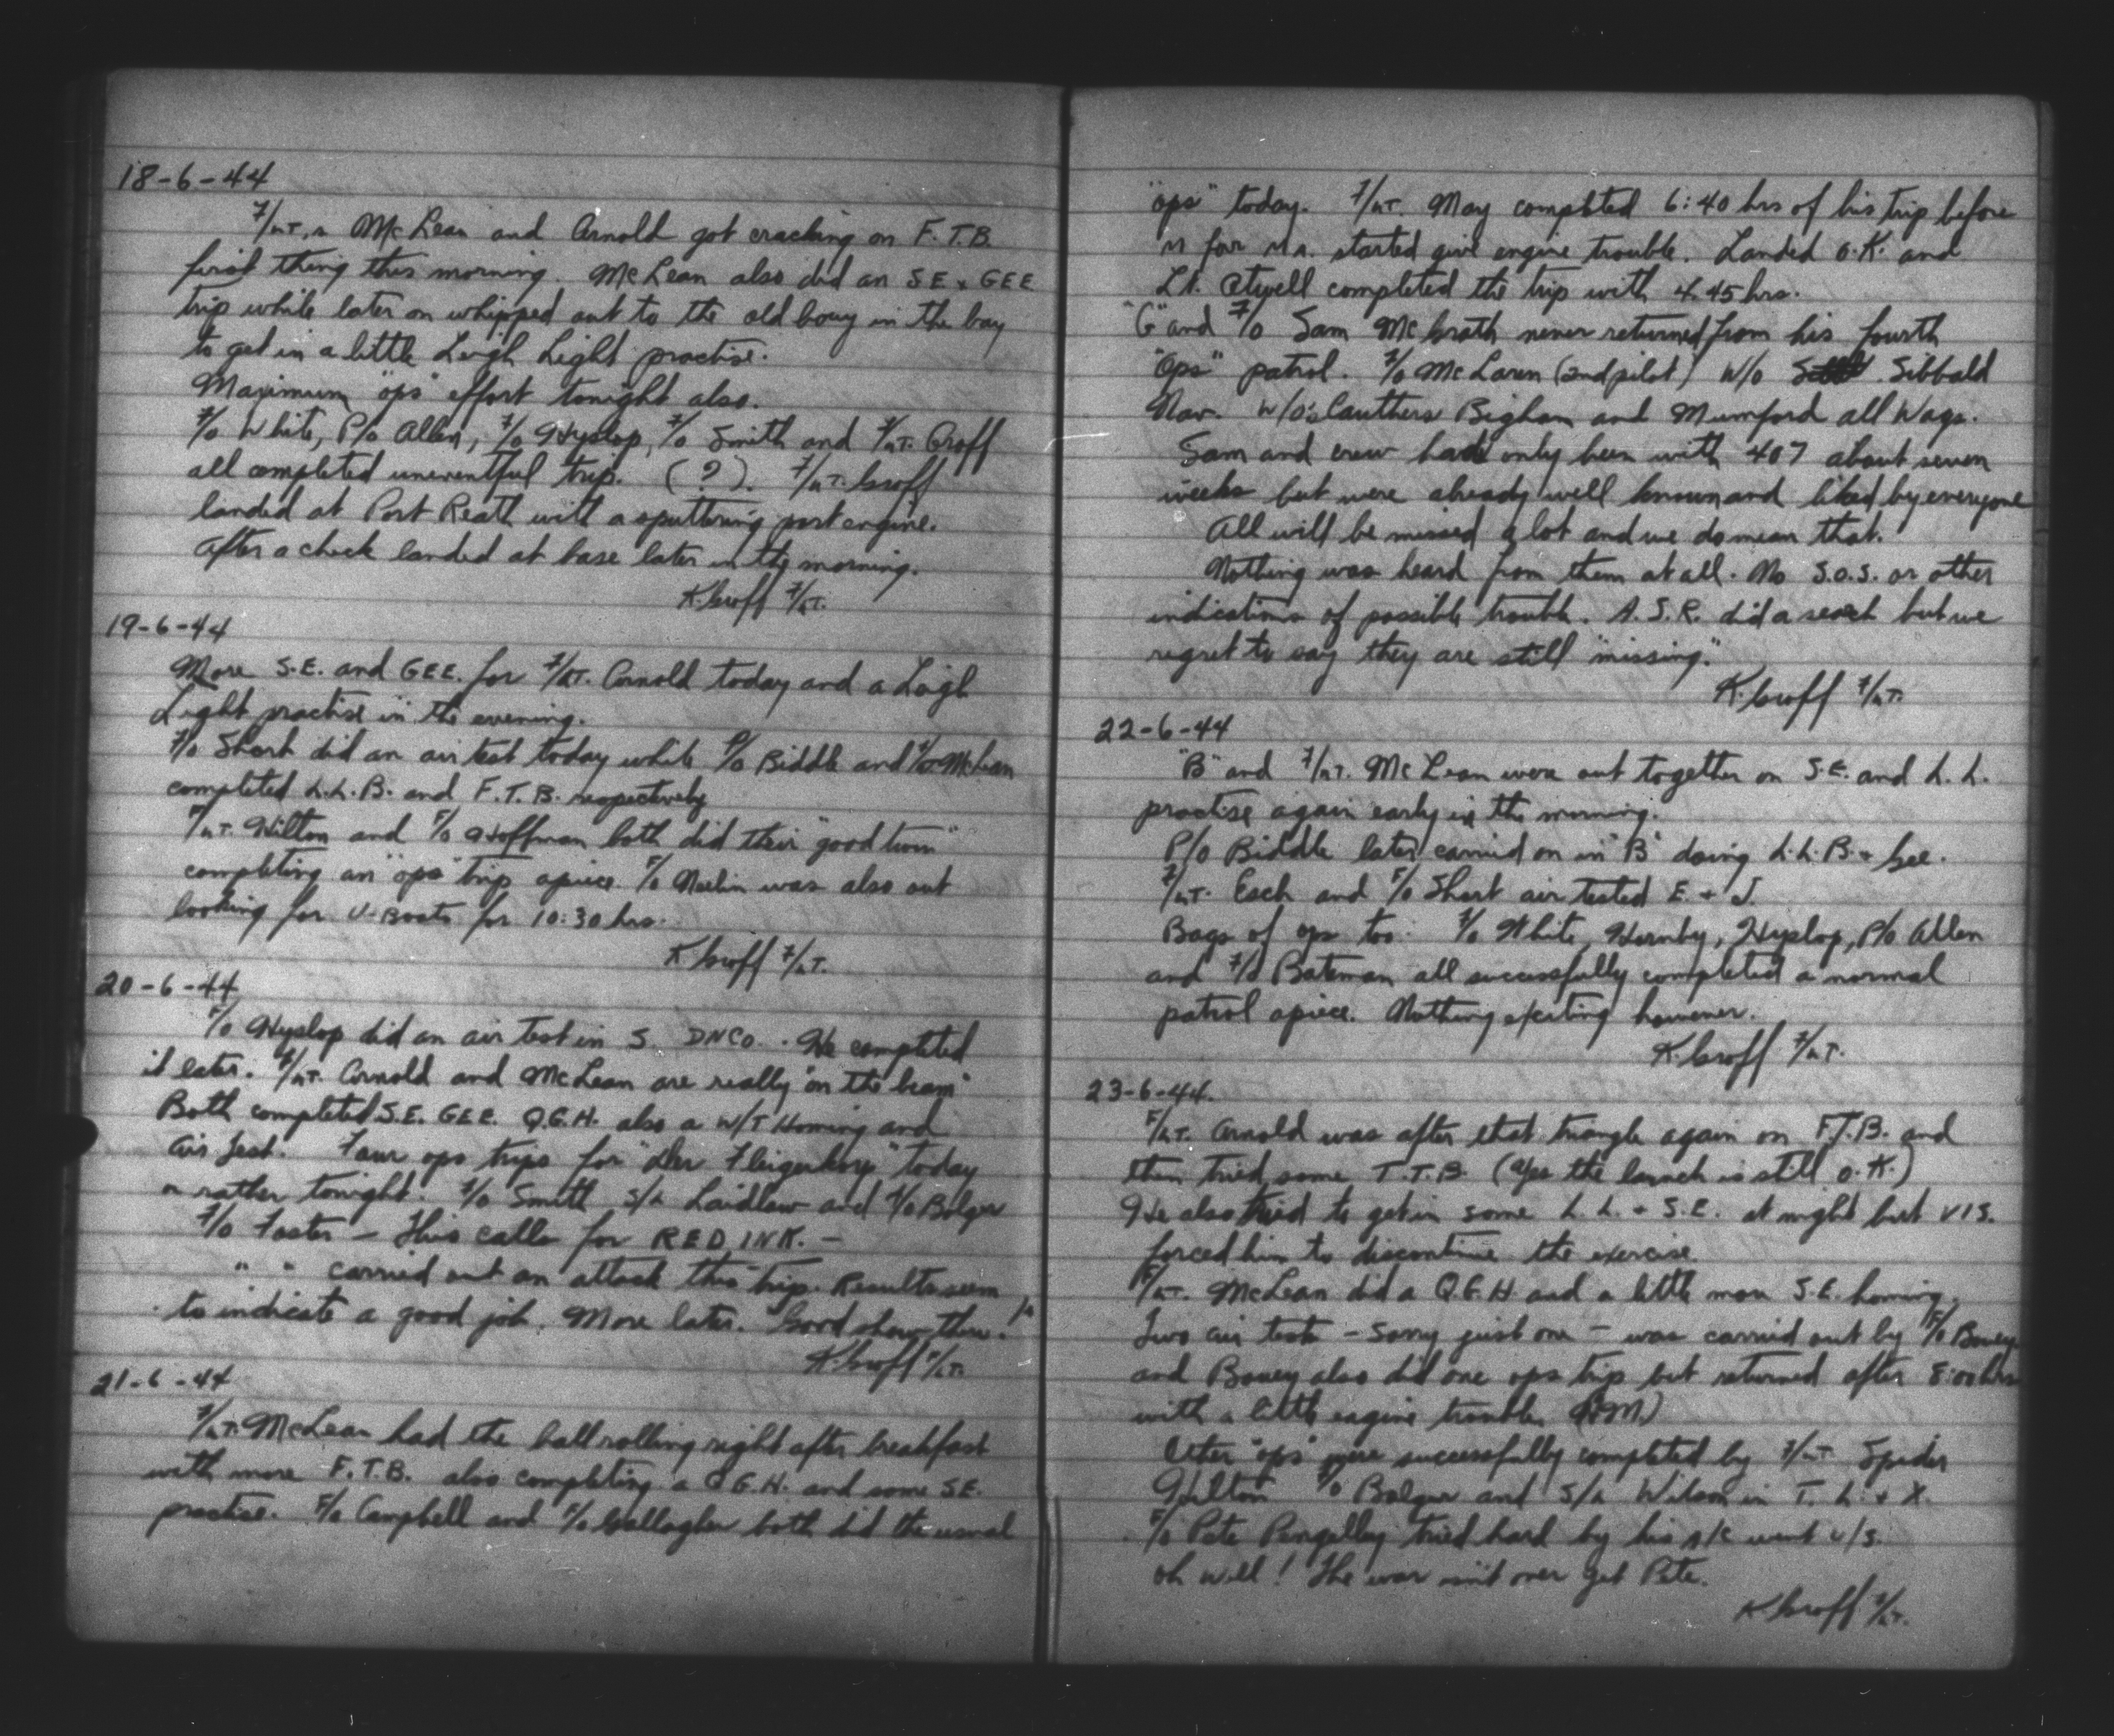 18-6-44
F/LT.s McLean and Arnold got cracking on F.T.B.
first thing this morning. McLean also did an S.E. & GEE
trip while later on whipped out to the old bouy in the bay
to get in a little Leigh Light practise.
Maximum "ops" effort tonight also.
F/O White, P/O Allen, F/O Hyslop, F/O Smith and F/LT. Groff
all completed uneventful trip. (?). F/LT. Groff
landed at Port Reath with a sputtering port engine.
After a check landed at base later in the morning.
K. Groff F/LT.
19-6-44
More S.E. and GEE. for F/LT. Arnold today and a Leigh
Light practise in the evening.
F/O Short did an air test today while P/O Biddle and F/LT McLean
completed L.L.B. and F.T.B. respectively
F/LT. Hilton and F/O Hoffman both did their "good turn"
completing an "ops" trip apiece. F/O Neelin was also out
looking for U-Boats for 10:30 hrs.
K Groff F/LT.
20-6-44
F/O Hyslop did an air test in S. DNCO. He completed
it later. F/LT. Arnold and McLean are really "on the beam"
Both completed S.E. GEE. Q.G.H. also a W/T Homing and
air test. Four ops trips for "Der Fleigerkorp" today
or rather tonight. F/O Smith S/L Laidlaw and F/O Bolger
F/O Foster - This calls for RED INK. -
" " carried out an attack this trip. Results seem
to indicate a good job. More later. Good show there!
K. Groff F/LT.
21-6-44
F/LT. McLean had the ball rolling right after breakfast
with more F.T.B. also completing a Q.G.H. and some S.E.
practise. F/O Campbell and F/O Gallagher both did the usual
"ops" today. F/LT. May completed 6:40 hrs of his trip before
M for started give engine trouble. Landed O.K. and
Lt. Atwell completed the trip with 4.45 hrs.
"G" and F/O Sam McGrath never returned from his fourth
"Ops" patrol. F/O McLaren (2nd pilot) W/O Sibbald
Nav. W/O's Cauthers Bigham and Mumford all Wags.
Sam and crew had only been with 407 about seven
weeks but were already well known and liked by everyone
All will be missed a lot and we do mean that.
Nothing was heard from them at all. No S.O.S. or other
indications of possible trouble. A.S.R. did a search but we
regret to say they are still "missing."
K. Groff F/LT.
22-6-44
"B" and F/LT. McLean were out together on S.E. and L.L.
practise again early in the morning.
P/O Biddle later carried on in "B" doing L.L.B. & Gee.
F/LT. Esch and F/O Short air tested E. & J.
Bags of ops too. F/O White, Hornby, Hyslop, P/O Allen
and F/O Bateman all successfully completed a normal
patrol apiece. Nothing exciting however.
K. Groff F/LT.
23-6-44.
F/LT. Arnold was after that triangle again on F.T.B. and
then tried some T.T.B. (Yes the launch is still O.K.)
He also tried to get in some L.L. & S.E. at night but VIS.
forced him to discontinue the exercise.
F/LT. McLean did a Q.G.H. and a little more S.E. homing.
Two air tests - sorry just one - was carried out by F/O Boney
and Boney also did one ops trip but returned after 8:00 hrs
with a little engine trouble
Other "ops" were successfully completed by F/LT Spider
Hilton F/O Bolger and S/L Wilson in T. L. & X.
F/O Pete Pengelley tried hard by his A/C went U/S.
oh well! The war isn't over yet Pete.
K Groff F/LT.